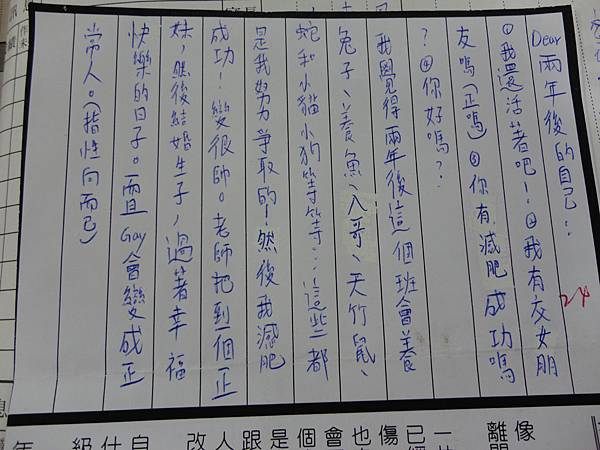 Dear 兩年後的自己：
①我還活著吧！②我有交女朋
友嗎（正嗎）③你有減肥成功嗎
？④你好嗎？？
我覺得兩年後這個班會養
兔子、養魚、八哥、天竹鼠、
蛇和小貓小狗等等…這些都
是我努力爭取的！然後我減肥
成功！變很帥。老師把到一個正
妹，然後結婚生子，過著幸福
快樂的日子。而且Gay會變成正
常人。（指性向而已）
24
像
離開
一
已
傷
也
會
個
是
跟
人
改
自
仕
級
年
息